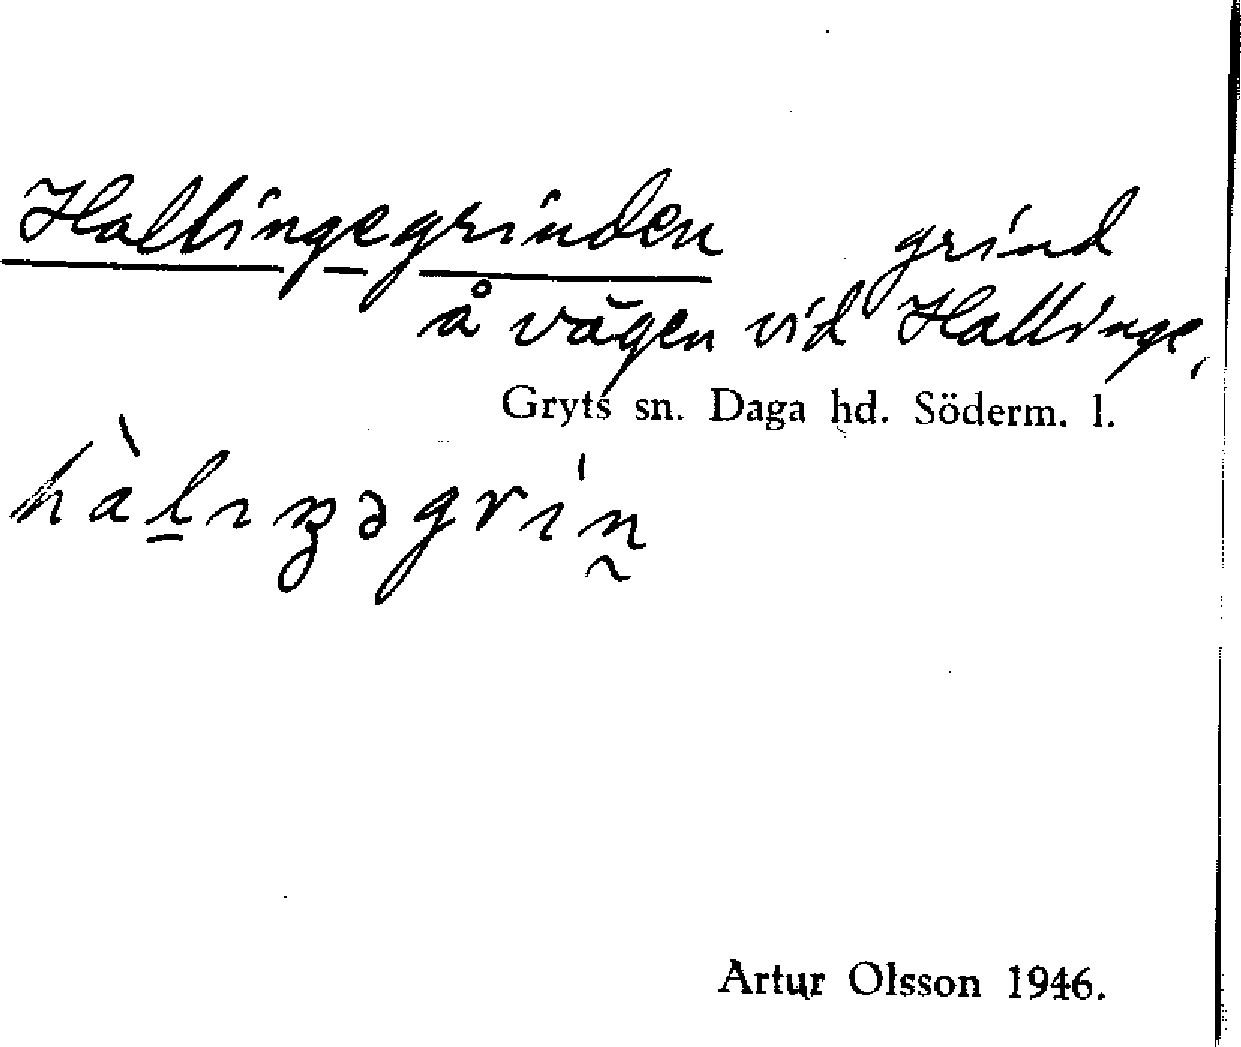 Hallingegrinden grind
å vägen vid Hallinge,
Gryts sn. Daga hd. Söderm. l.
Artur Olsson 1946.